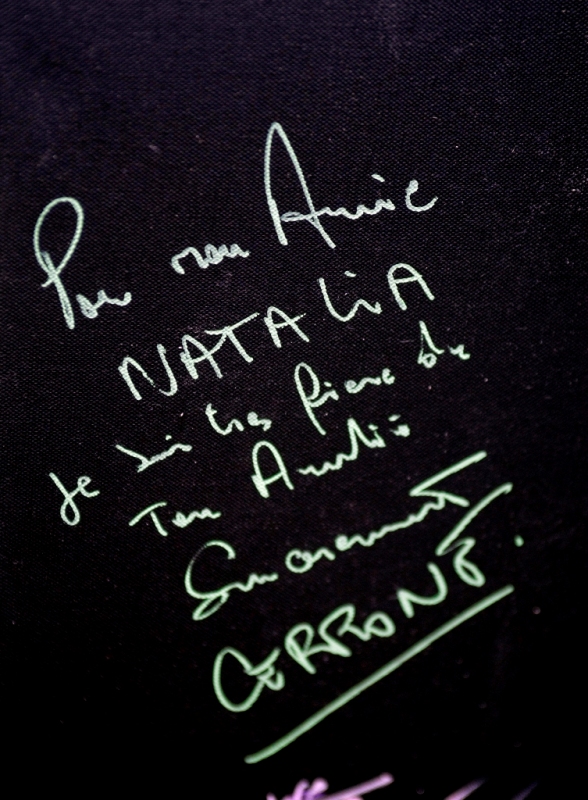 Pour mon Amie
NATALIA
Je suis tres fiere de
Ton Amitié
Sincerement
CERRONE.